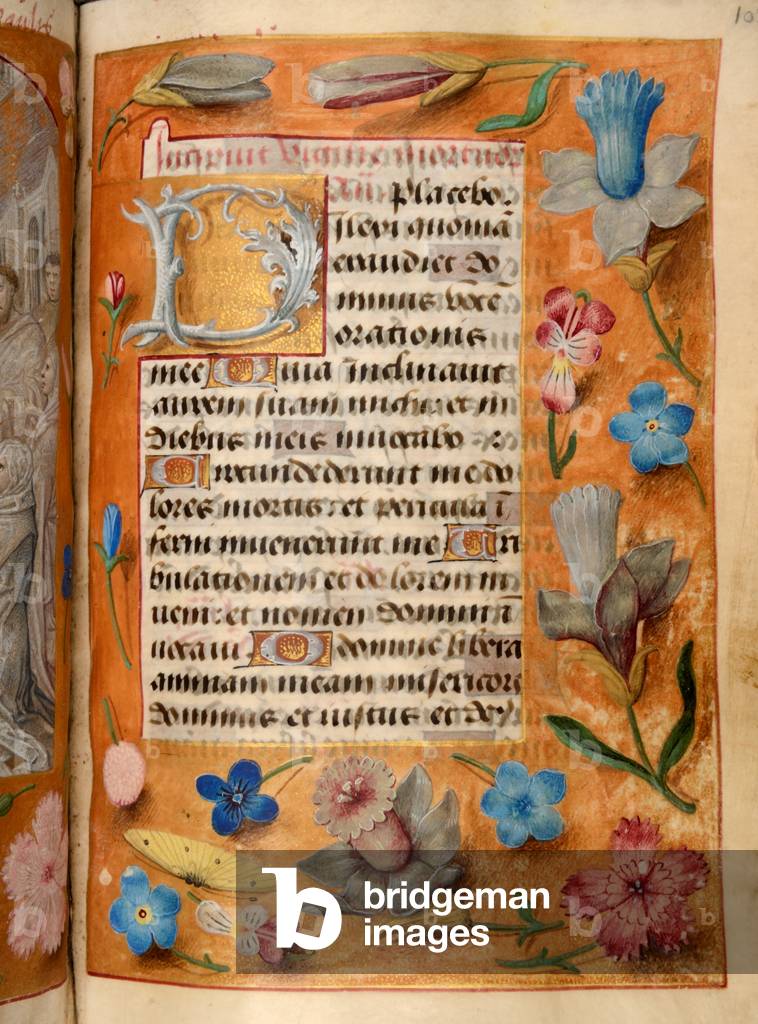 10
Incipiunt Vigilie mortuorū
Añ Placebo.
Dilexi quoniā
exaudiet do
minus voce
orationis
mee Quia inclinauit
aurem suam michi: et in
diebus meis inuocabo
Circundederunt me do
lores mortis: et pericula ī
ferni inuenerunt me Tri
bulationem et dolorem in
ueni: et nomen domini
uocaui O domine libera
animam meam misericors
dominus et iustus et de9
b bridgeman
images